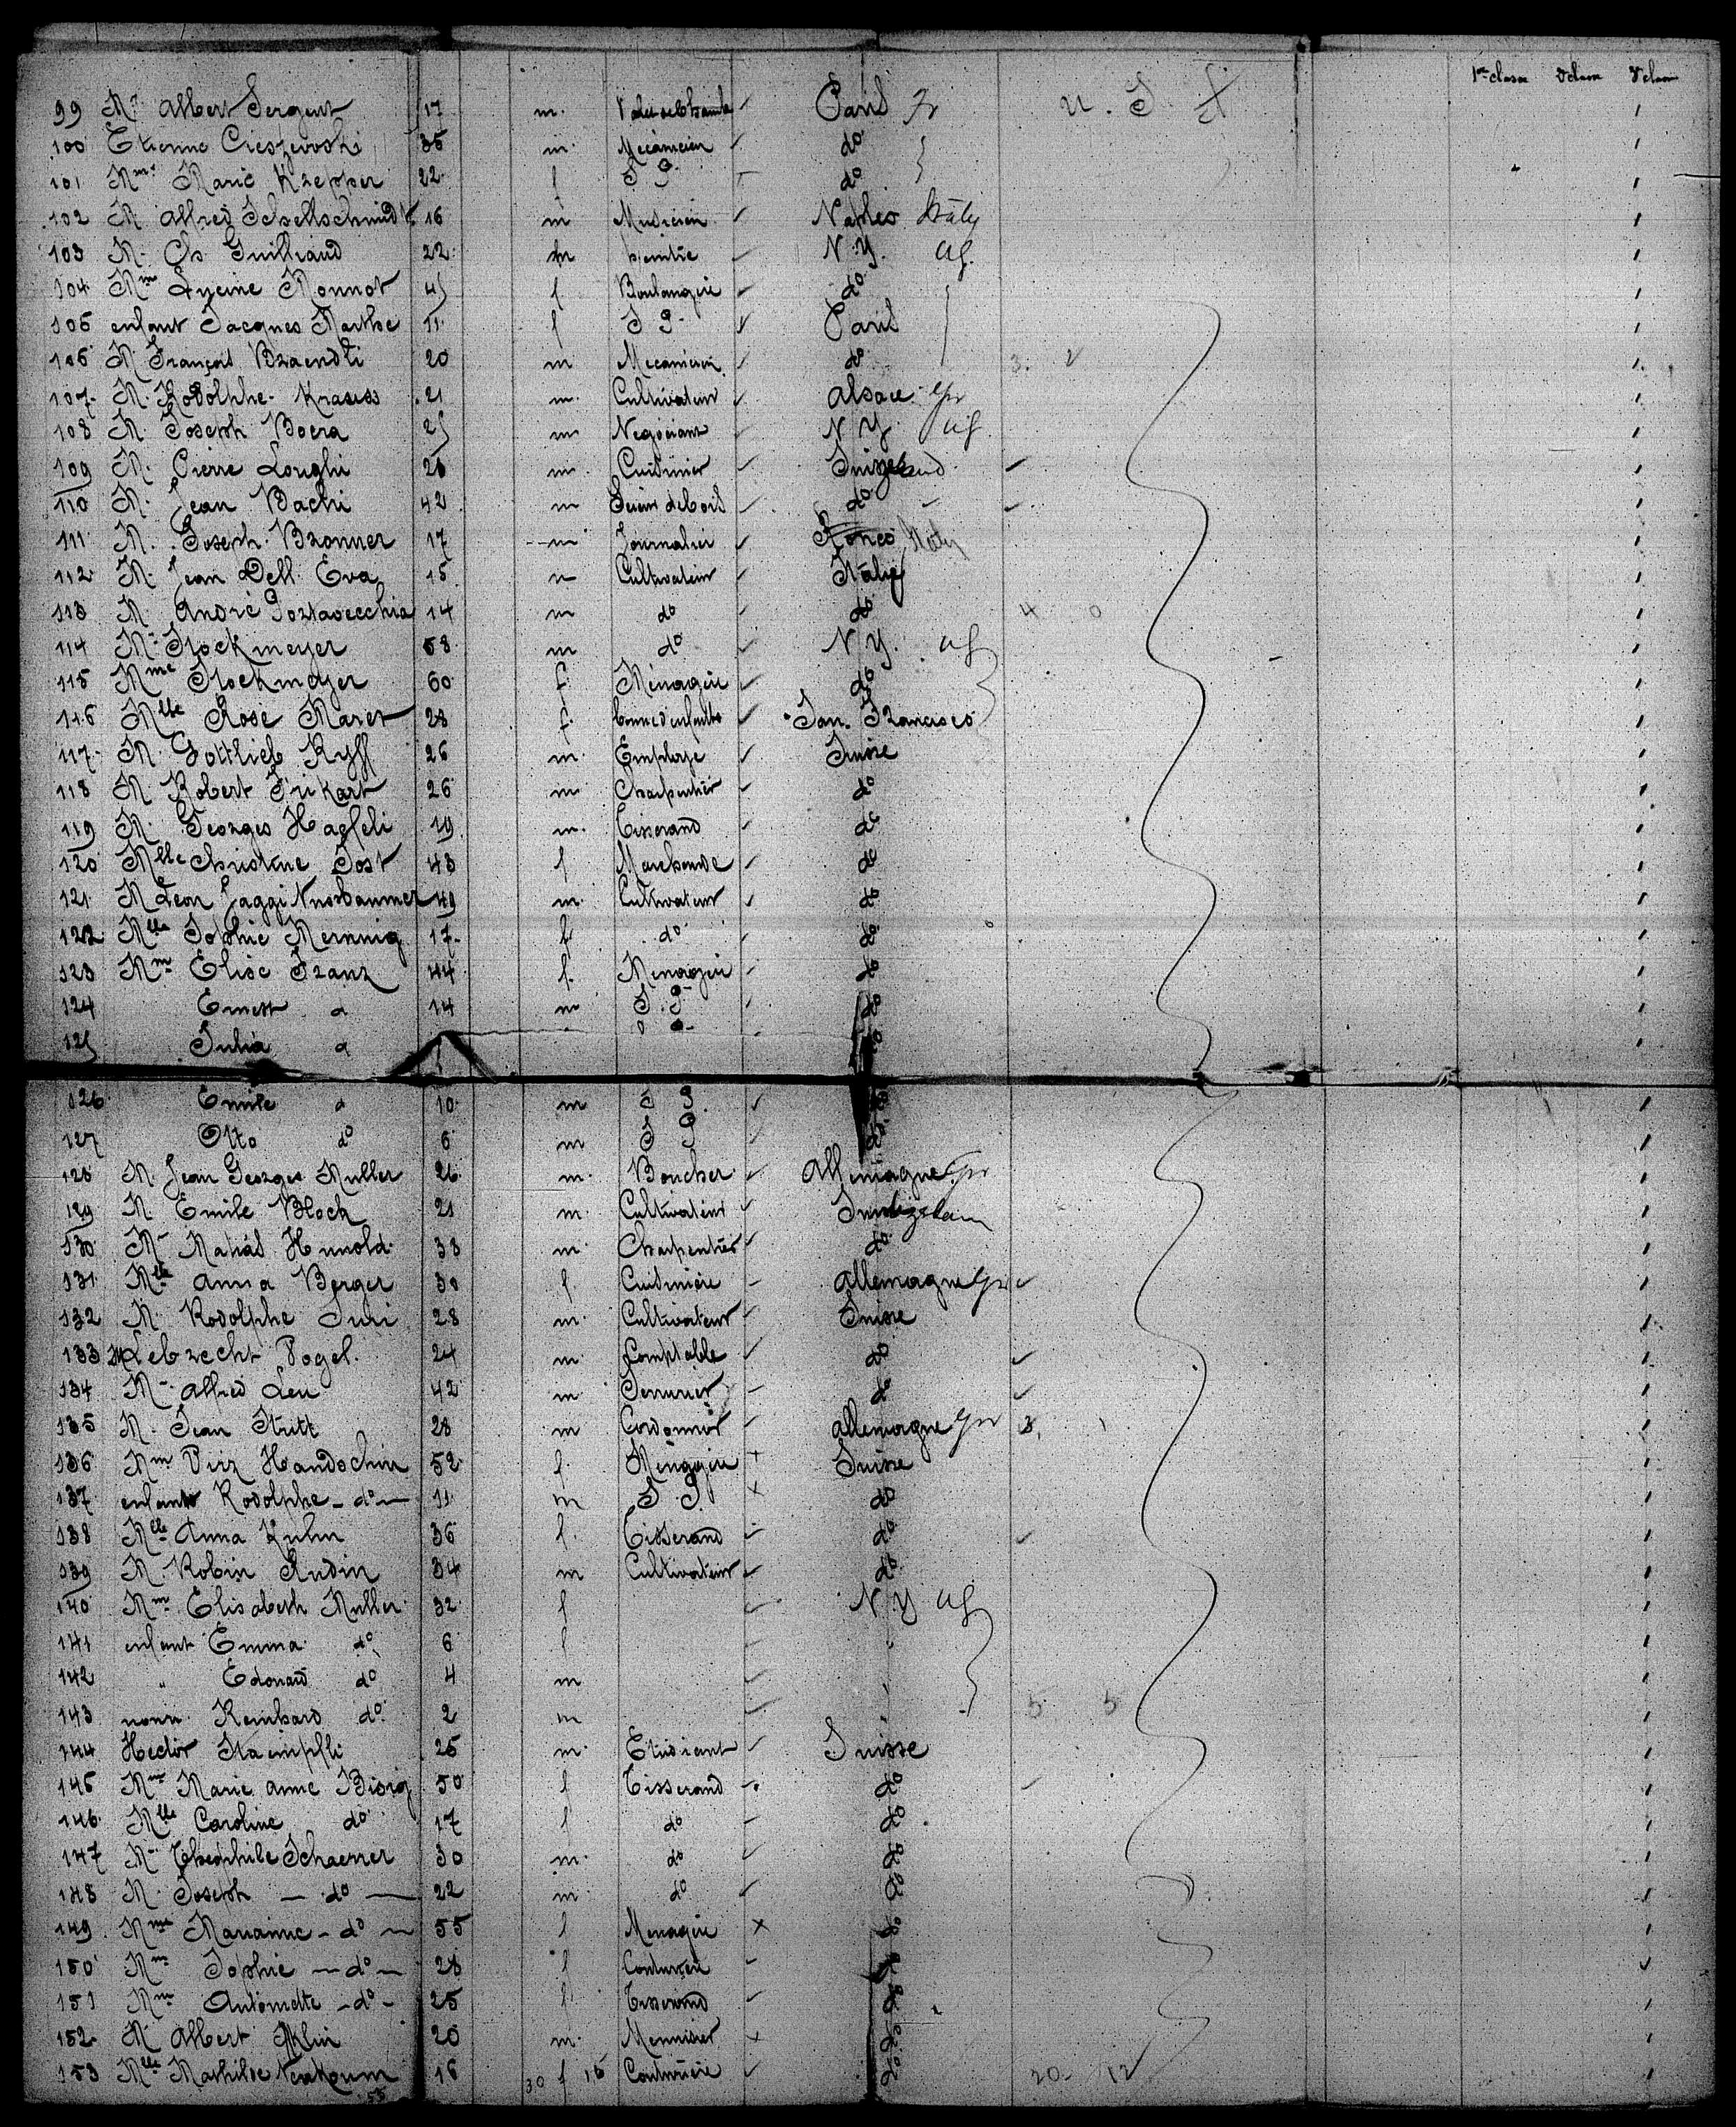 1re classe 2 classe 3 classe
99 Mr Albert Sergent 17 m. Valet de Chambre Paris Fr U. S. A
100 Etienne Cieszewoski 35 m. Mécanicien do
101 Mme Marie Krepper 22 f S P. do
102 M Alfred Schellschmidt 16 m Musicien Naples Italy
103 M. Ch Guilliaud 22 m peintre N. Y.
104 Mme Lucine Monnot 45 f. Boulangère do
105 enfant Jacques Marthe 11 f S P. Paris
106 M François Braendli 20 m Mecanicien do 3. 2
107 M. Rodolphe Krauss 21 m. Cultivateur Alsace Gr
108 M. Joseph Boera 25 m Negociant N. Y.
109 M. Pierre Longhi 26 m. Cuisinier
110 M. Jean Bachi 42 m Scieur de bois do
111 M. Joseph Bronner 17 m Journalier Italy
112 M. Jean Dell. Eva 15 m Cultivateur Italy
113 M André Portavecchia 14 m do do 4 0
114 M. Stockmeyer 58 m do N Y.
115 Mme Stockmeyer 60 f Ménagère do
116 Mlle Rose Marer 28 f. bonne d'enfants San. Francisco
117 M. Gottlieb Ryff 26 m. Employé Suisse
118 M. Robert Frikart 26 m Charpentier do
119 M. Georges Haefeli 19 m. Tisserand do
120 Mlle Christine Jost 43 f Marchande do
121 M Leon Jaggi Nussbaumer 49 m. Cultivateur do
122 Mlle Sophie Mernnig 17 f do do
123 Mme Elise Franz 44 f. Menagère do
124 Ernest d 14 m S P do
125 Julia d do
126 Emile d 10 m S P. do
127 Otto do 6 m S P do
128 M. Jean Georges Muller 26 m. Boucher Allemagne Gr
129 M Emile Block 21 m. Cultivateur
130 M. Hunold 33 m. Charpentier do
131 Mlle Anna Berger 30 f. Cuisinière Allemagne Gr
132 M. Rodolphe Suri 28 m. Cultivateur Suisse
133 M Lebrecht Vogel. 24 m. Comptable do
134 M. Alfred Leu 42 m. Serrurier do
135 M. Jean Stritt 28 m Cordonnier Allemagne Gr 3.
136 Mme Virz Handschin 52 f. Ménagère Suisse
137 enfants Rodolphe - do - 11 m S. P. do
138 Mlle Anna Kuhn 36 f. Tisserand do
139 M. Robin Rudin 34 m Cultivateur do
140 Mme Elisabeth Muller 32 f N Y
141 enfant Emma do 6 f
142 " Edouard do 4 m
143 nourr. Reinhard do 2 m 5 5
144 Hector Staempfli 25 m. Etudiant Suisse
145 Mme Marie Anne Bisig 50 f Tisserand do
146 Mlle Caroline do 17 f do do
147 M. Théophile Schaerrer 30 m. do do
148 M. Joseph - do - 22 m. do do
149 Mme Marianne - do - 55 f Menagère do
150 Mme Sophie - do - 28 f Couturière do
151 Mme Antoinette - do - 25 f. Tisserand do
152 M Albert 20 m. Menuisier do
153 Mlle Mathilde 16 30 f 16 Couturière do 20. 12
55